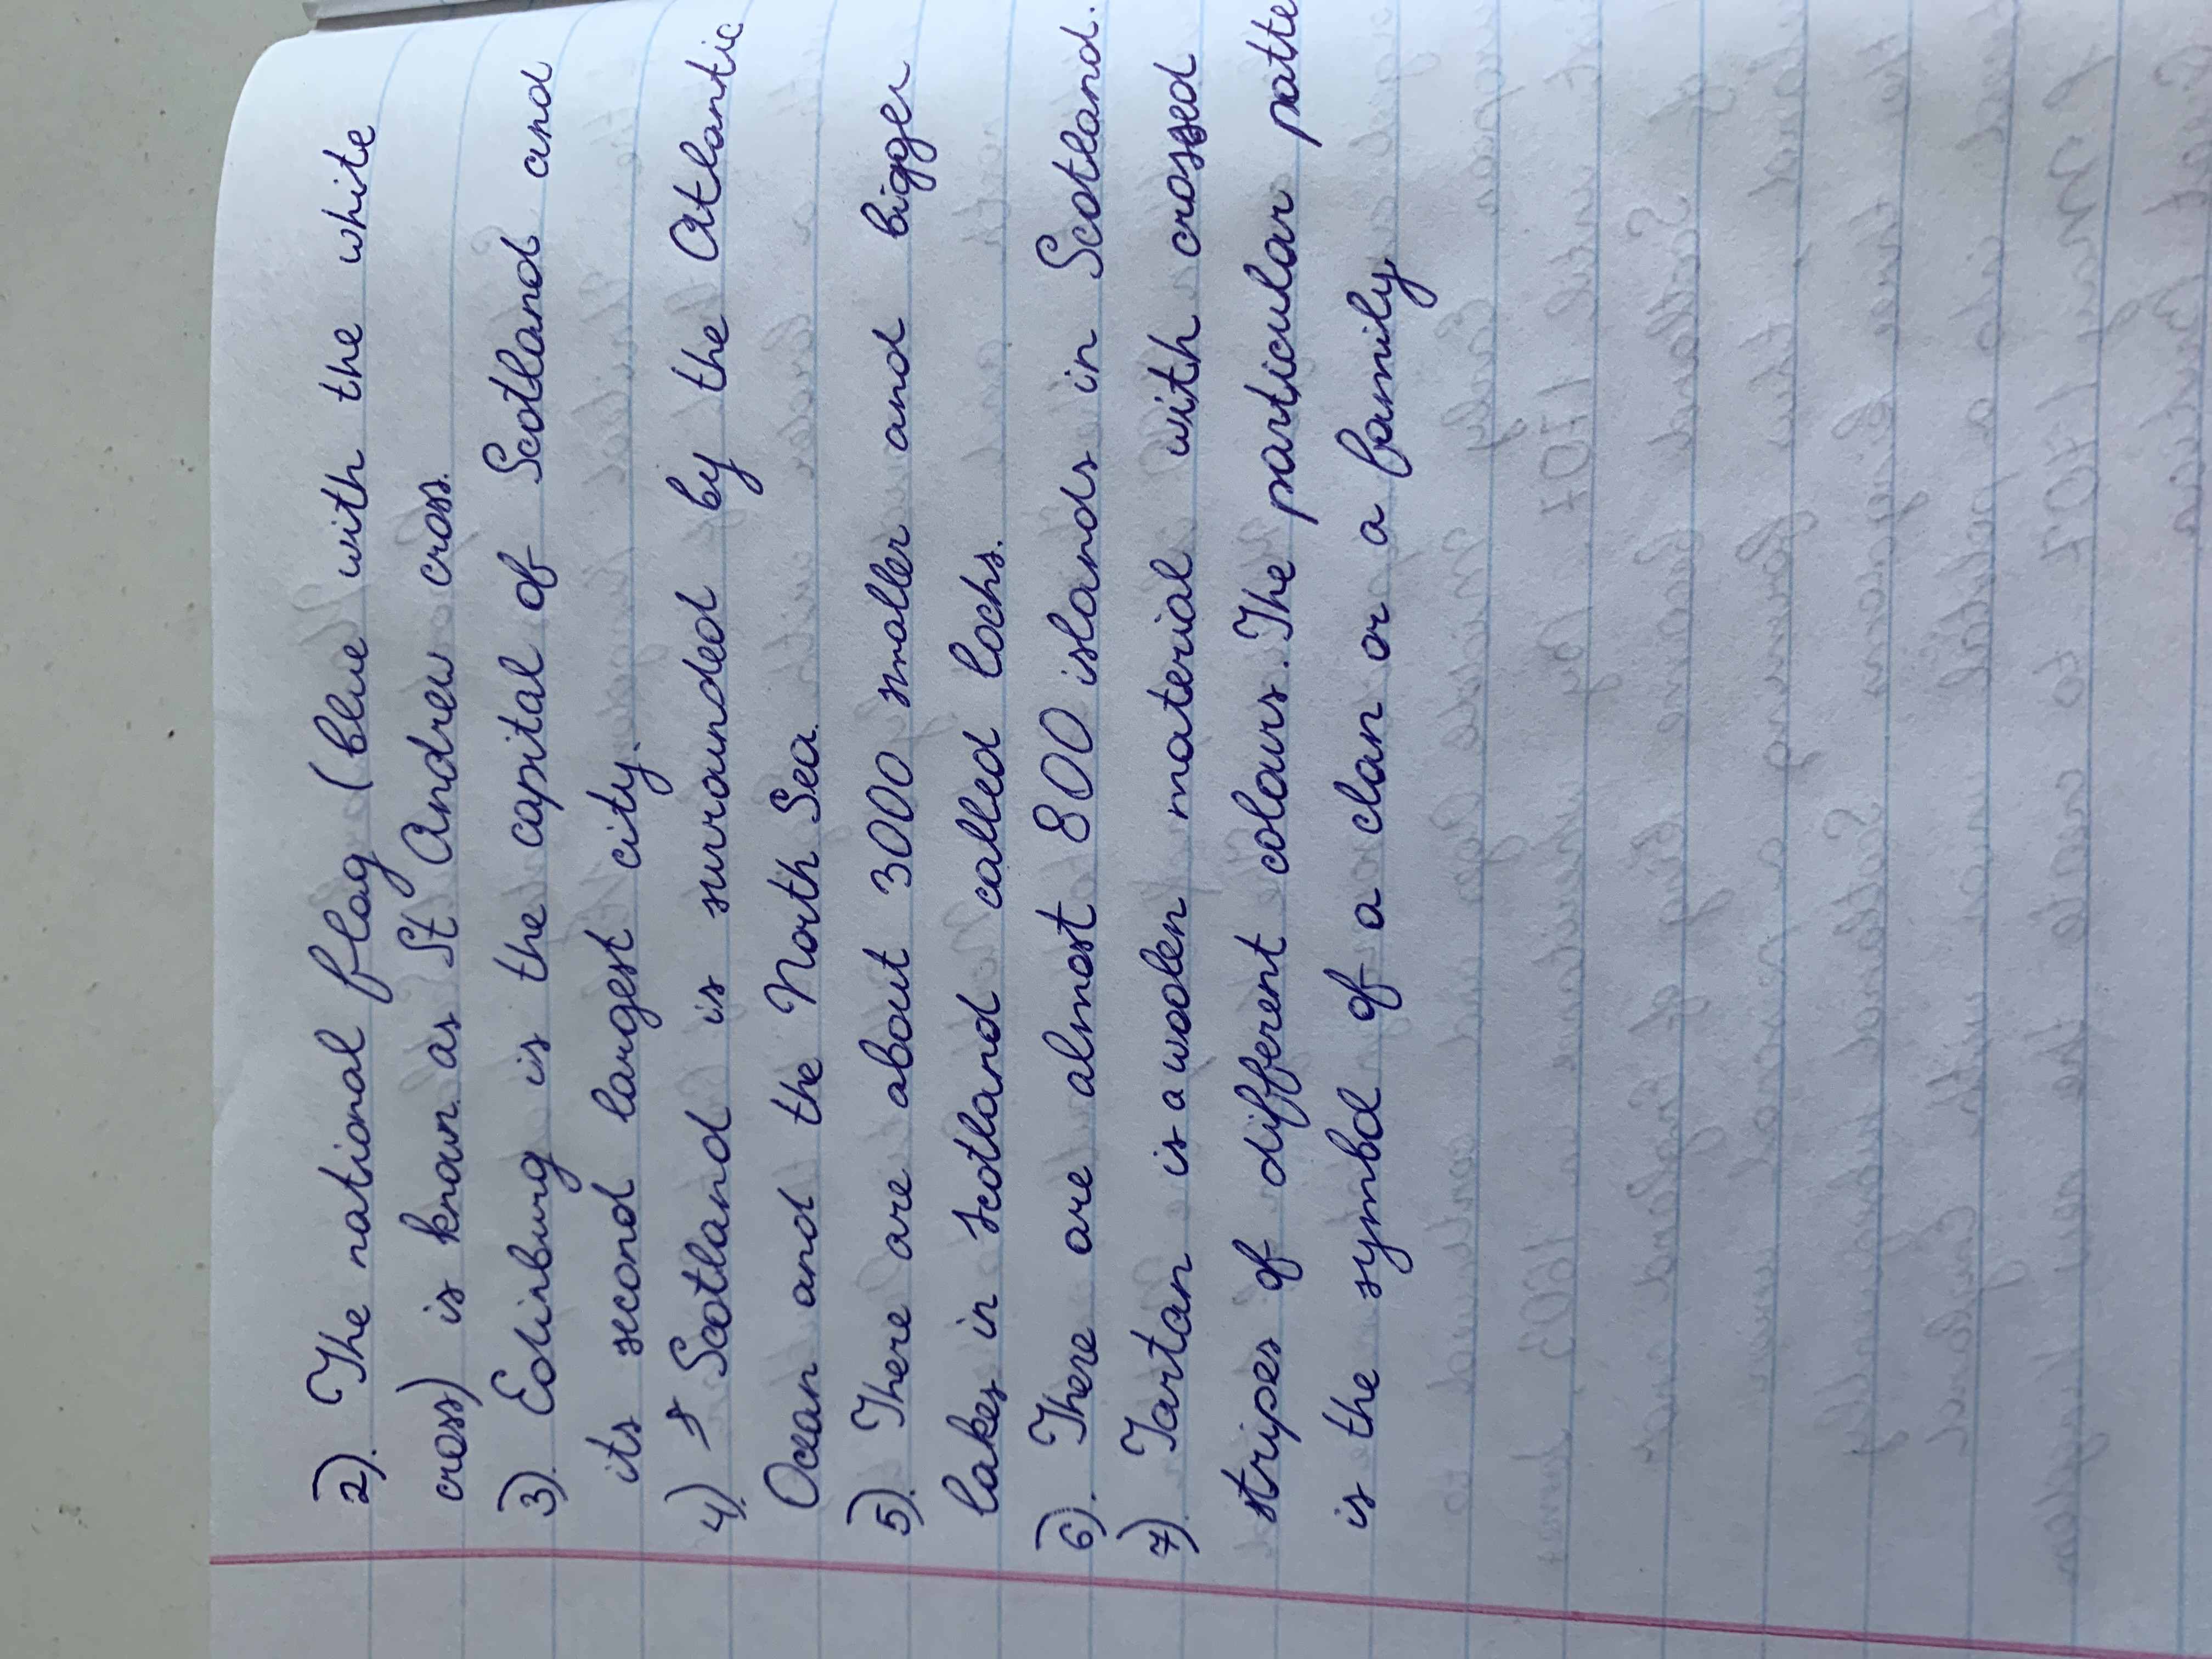 2). The national flag (blue with the white
cross) is known as St Andrew cross.
3). Edinburg is the capital of Scotland and
its second largest city.
4). Scotland is surrounded by the Atlantic
Ocean and the North Sea.
5). There are about 3000 smaller and bigger
lakes in Scotland called lochs.
6). There are almost 800 islands in Scotland.
7). Tartan is a woolen material with crossed
stripes of different colours. The particular patte
is the symbol of a clan or a family